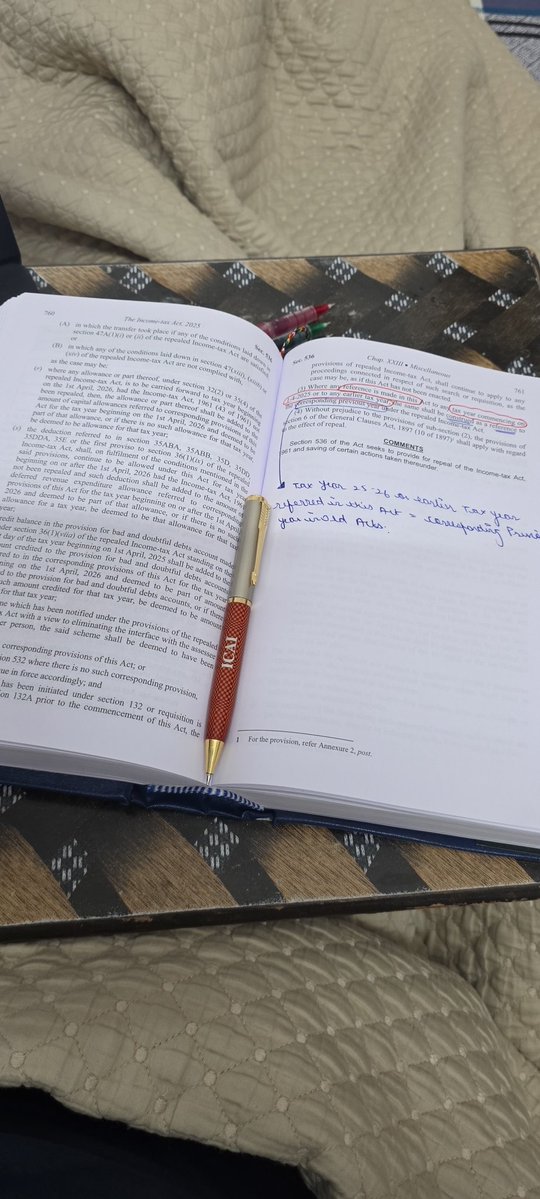 760
The Income-tax Act, 2025
Sec. 536
(A) in which the transfer took place if any of the conditions laid down in
section 47A(1)(i) or (ii) of the repealed Income-tax Act are
or
(B) in which any of the conditions laid down in section 47(xiii),
(xiv) of the repealed Income-tax Act are not complied with,
as the case may be;
where any allowance or part thereof, under section 32(2) or 35(4) of the
repealed Income-tax Act, is to be carried forward to the tax year beginning
on the 1st April, 2026, had the Income-tax Act, 1961 (43 of 1961) not
been repealed, then, the allowance or part thereof shall be added to the
amount of capital allowances referred to corresponding provisions of the
Act for the tax year beginning on the 1st April, 2026 and deemed to be
part of that allowance, or if there is no such allowance for that tax year,
be deemed to be allowance for that tax year;
the deduction referred to in section 35ABA, 35ABB, 35D, 35DD,
35DDA, 35E or the first proviso to section 36(1)(ix) of the repealed
Income-tax Act, shall, on fulfilment of the conditions mentioned in the
said provisions, continue to be allowed under this Act for tax year
beginning on or after the 1st April, 2026 had the Income-tax Act,
not been repealed and such deduction shall be added to the amount of
deferred revenue expenditure allowance referred to corresponding
provisions of this Act for tax year beginning on or after the 1st April,
2026 and deemed to be part of that allowance, or if there is no such
allowance for a tax year, be deemed to be that allowance for that tax
year;
credit balance in the provision for bad and doubtful debts account under
section 36(1)(viia) of the repealed Income-tax Act standing on the
day of the tax year beginning on 1st April, 2025 shall be added to the
amount credited to the provision for bad and doubtful debts account
referred to in the corresponding provisions of this Act for the tax year
beginning on the 1st April, 2026 and deemed to be part of amount
credited to the provision for bad and doubtful debts accounts, or if there
such amount credited for that tax year, be deemed to be amount
for that tax year;
me which has been notified under the provisions of the repealed
Act with a view to eliminating the interface with the assessee
er person, the said scheme shall be deemed to have been
corresponding provisions of this Act; or
ion 532 where there is no such corresponding provision,
ue in force accordingly; and
has been initiated under section 132 or requisition is
on 132A prior to the commencement of this Act, the
Sec. 536
Chap. XXIII • Miscellaneous
761
provisions of repealed Income-tax Act, shall continue to apply to any
proceedings connected in respect of such search or requisition, as the
case may be, as if this Act has not been enacted.
(3) Where any reference is made in this Act to any tax year commencing on
1-4-2025 or to any earlier tax year, the same shall be construed as a reference to
the corresponding previous year under the repealed Income-tax Act.
(4) Without prejudice to the provisions of sub-section (2), the provisions of
section 6 of the General Clauses Act, 1897 (10 of 1897)¹ shall apply with regard
to the effect of repeal.
COMMENTS
Section 536 of the Act seeks to provide for repeal of the Income-tax Act,
1961 and saving of certain actions taken thereunder.
Tax Year 25-26 or earlier Tax year
referred in this Act = corresponding
year in Old Act.
ICAI
1 For the provision, refer Annexure 2, post.